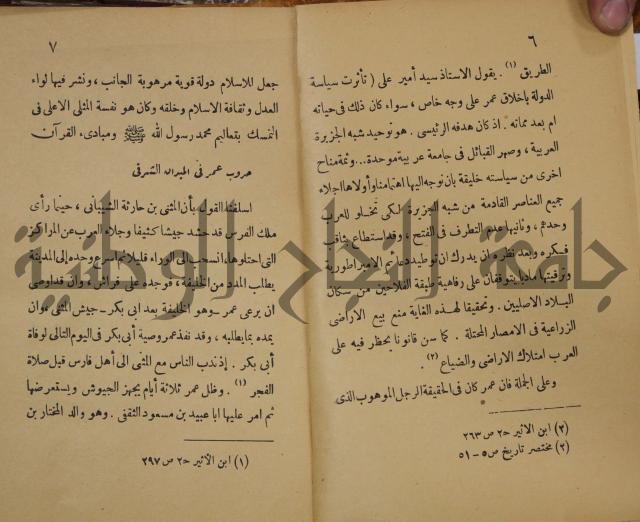 ٦
الطريق (١) . يقول الاستاذ سيد أمير على ( تأثرت سياسة
الدولة باخلاق عمر على وجه خاص ، سواء كان ذلك فى حياته
ام بعد مماته . اذ كان هدفه الرئيسى . هو توحيد شبه الجزيرة
العربية ، وصهر القبائل فى جامعة عربية موحدة... وثمة مناح
اخرى من سياسته خليقة بان نوجه اليها اهتمامنا واولاها اجلاء
جميع العناصر القادمة من شبه الجزيرة لكى تخلو للعرب
وحدهم ، وثانيها عدم التطرف فى الفتح ، وقد استطاع بثاقب
فكره وبعد نظره ان يدرك ان توطيد دعائم الامبراطورية
وترقيتها ماديا يتوقفان على رفاهية طبقة الفلاحين من سكان
البلاد الاصليين . وتحقيقا لهذه الغاية منع بيع الاراضى
الزراعية فى الامصار المحتلة . كما سن قانونا يحظر فيه على
العرب امتلاك الاراضى والضياع (٢) .
وعلى الجملة فان عمر كان فى الحقيقة الرجل الموهوب الذى
(٢) ابن الاثير ح٢ ص ٢٦٣
(٢) مختصر تاريخ ص ٥ – ٥١
٧
جعل للاسلام دولة قوية مرهوبة الجانب ، ونشر فيها لواء
العدل وثقافة الاسلام وخلقه وكان هو نفسة المثلى الاعلى فى
التمسك بتعاليم محمد رسول الله ﷺ ومبادىء القرآن
حروب عمر فى الميدان الشرقى
اسلفنا القول بأن المثنى بن حارثة الشيبانى ، حينما رأى
ملك الفرس قد حشد جيشا كثيفا وجلاء العرب عن المراكز
التى احتلوها، انسحب الى الوراء قليلا ثم اسرع وحده إلى المدينة
يطلب المدد من الخليفة ، فوجده على فراش ، وان قد اوصى
ان يرعى عمر – وهو الخليفة بعد ابى بكر – جيش المثنى ، وان
يمده بما يطلبه ، وقد نفذ عمر وصية أبى بكر فى اليوم التالى لوفاة
أبى بكر . إذ ندب الناس مع المثنى الى أهل فارس قبل صلاة
الفجر (١) . وظل عمر ثلاثة أيام يجهز الجيوش ويستعرضها
ثم امر عليها ابا عبيد بن مسعود الثقفى . وهو والد المختار بن
(١) ابن الأثير ح٢ ص ٢٩٧
جامعة النجاح الوطنية